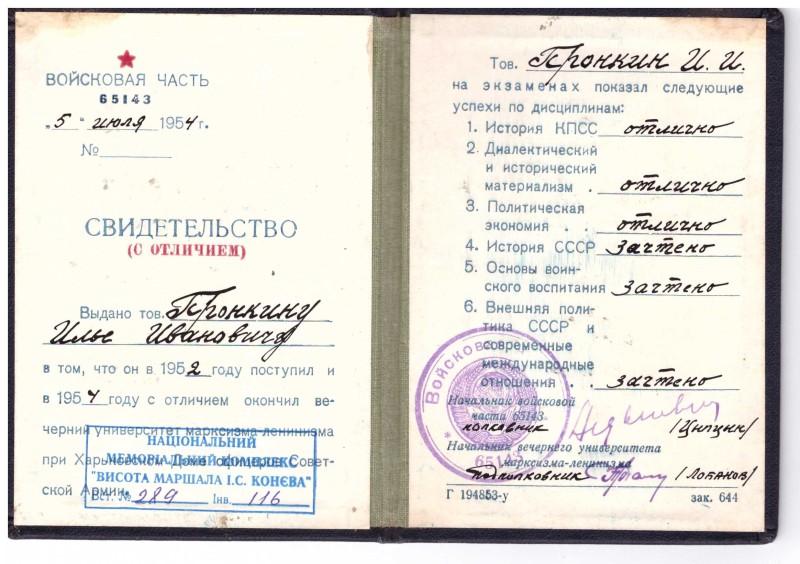 ВОЙСКОВАЯ ЧАСТЬ
65143
„5“ июля 1954 г.
№
СВИДЕТЕЛЬСТВО
(С ОТЛИЧИЕМ)
Выдано тов. Пронкину
Илье Ивановичу
в том, что он в 1952 году поступил и
в 1954 году с отличием окончил ве-
черний университет марксизма-ленинизма
при Харьковском Доме офицеров Совет-
ской Армии.
НАЦІОНАЛЬНИЙ
МЕМОРІАЛЬНИЙ КОМПЛЕКС
"ВИСОТА МАРШАЛА І.С. КОНЄВА"
Вст. № 289 Інв. 116
Тов. Пронкин И. И.
на экзаменах показал следующие
успехи по дисциплинам:
1. История КПСС отлично
2. Диалектический
и исторический
материализм . отлично
3. Политическая
экономия . . отлично
4. История СССР зачтено
5. Основы воин-
ского воспитания зачтено
6. Внешняя поли-
тика СССР и
современные
международные
отношения . . зачтено
Начальник войсковой
части 65143
полковник /Цыпцин/
Начальник вечернего университета
марксизма-ленинизма
подполковник /Лобанов/
Войсковая
65143
Г 194853-у зак. 644